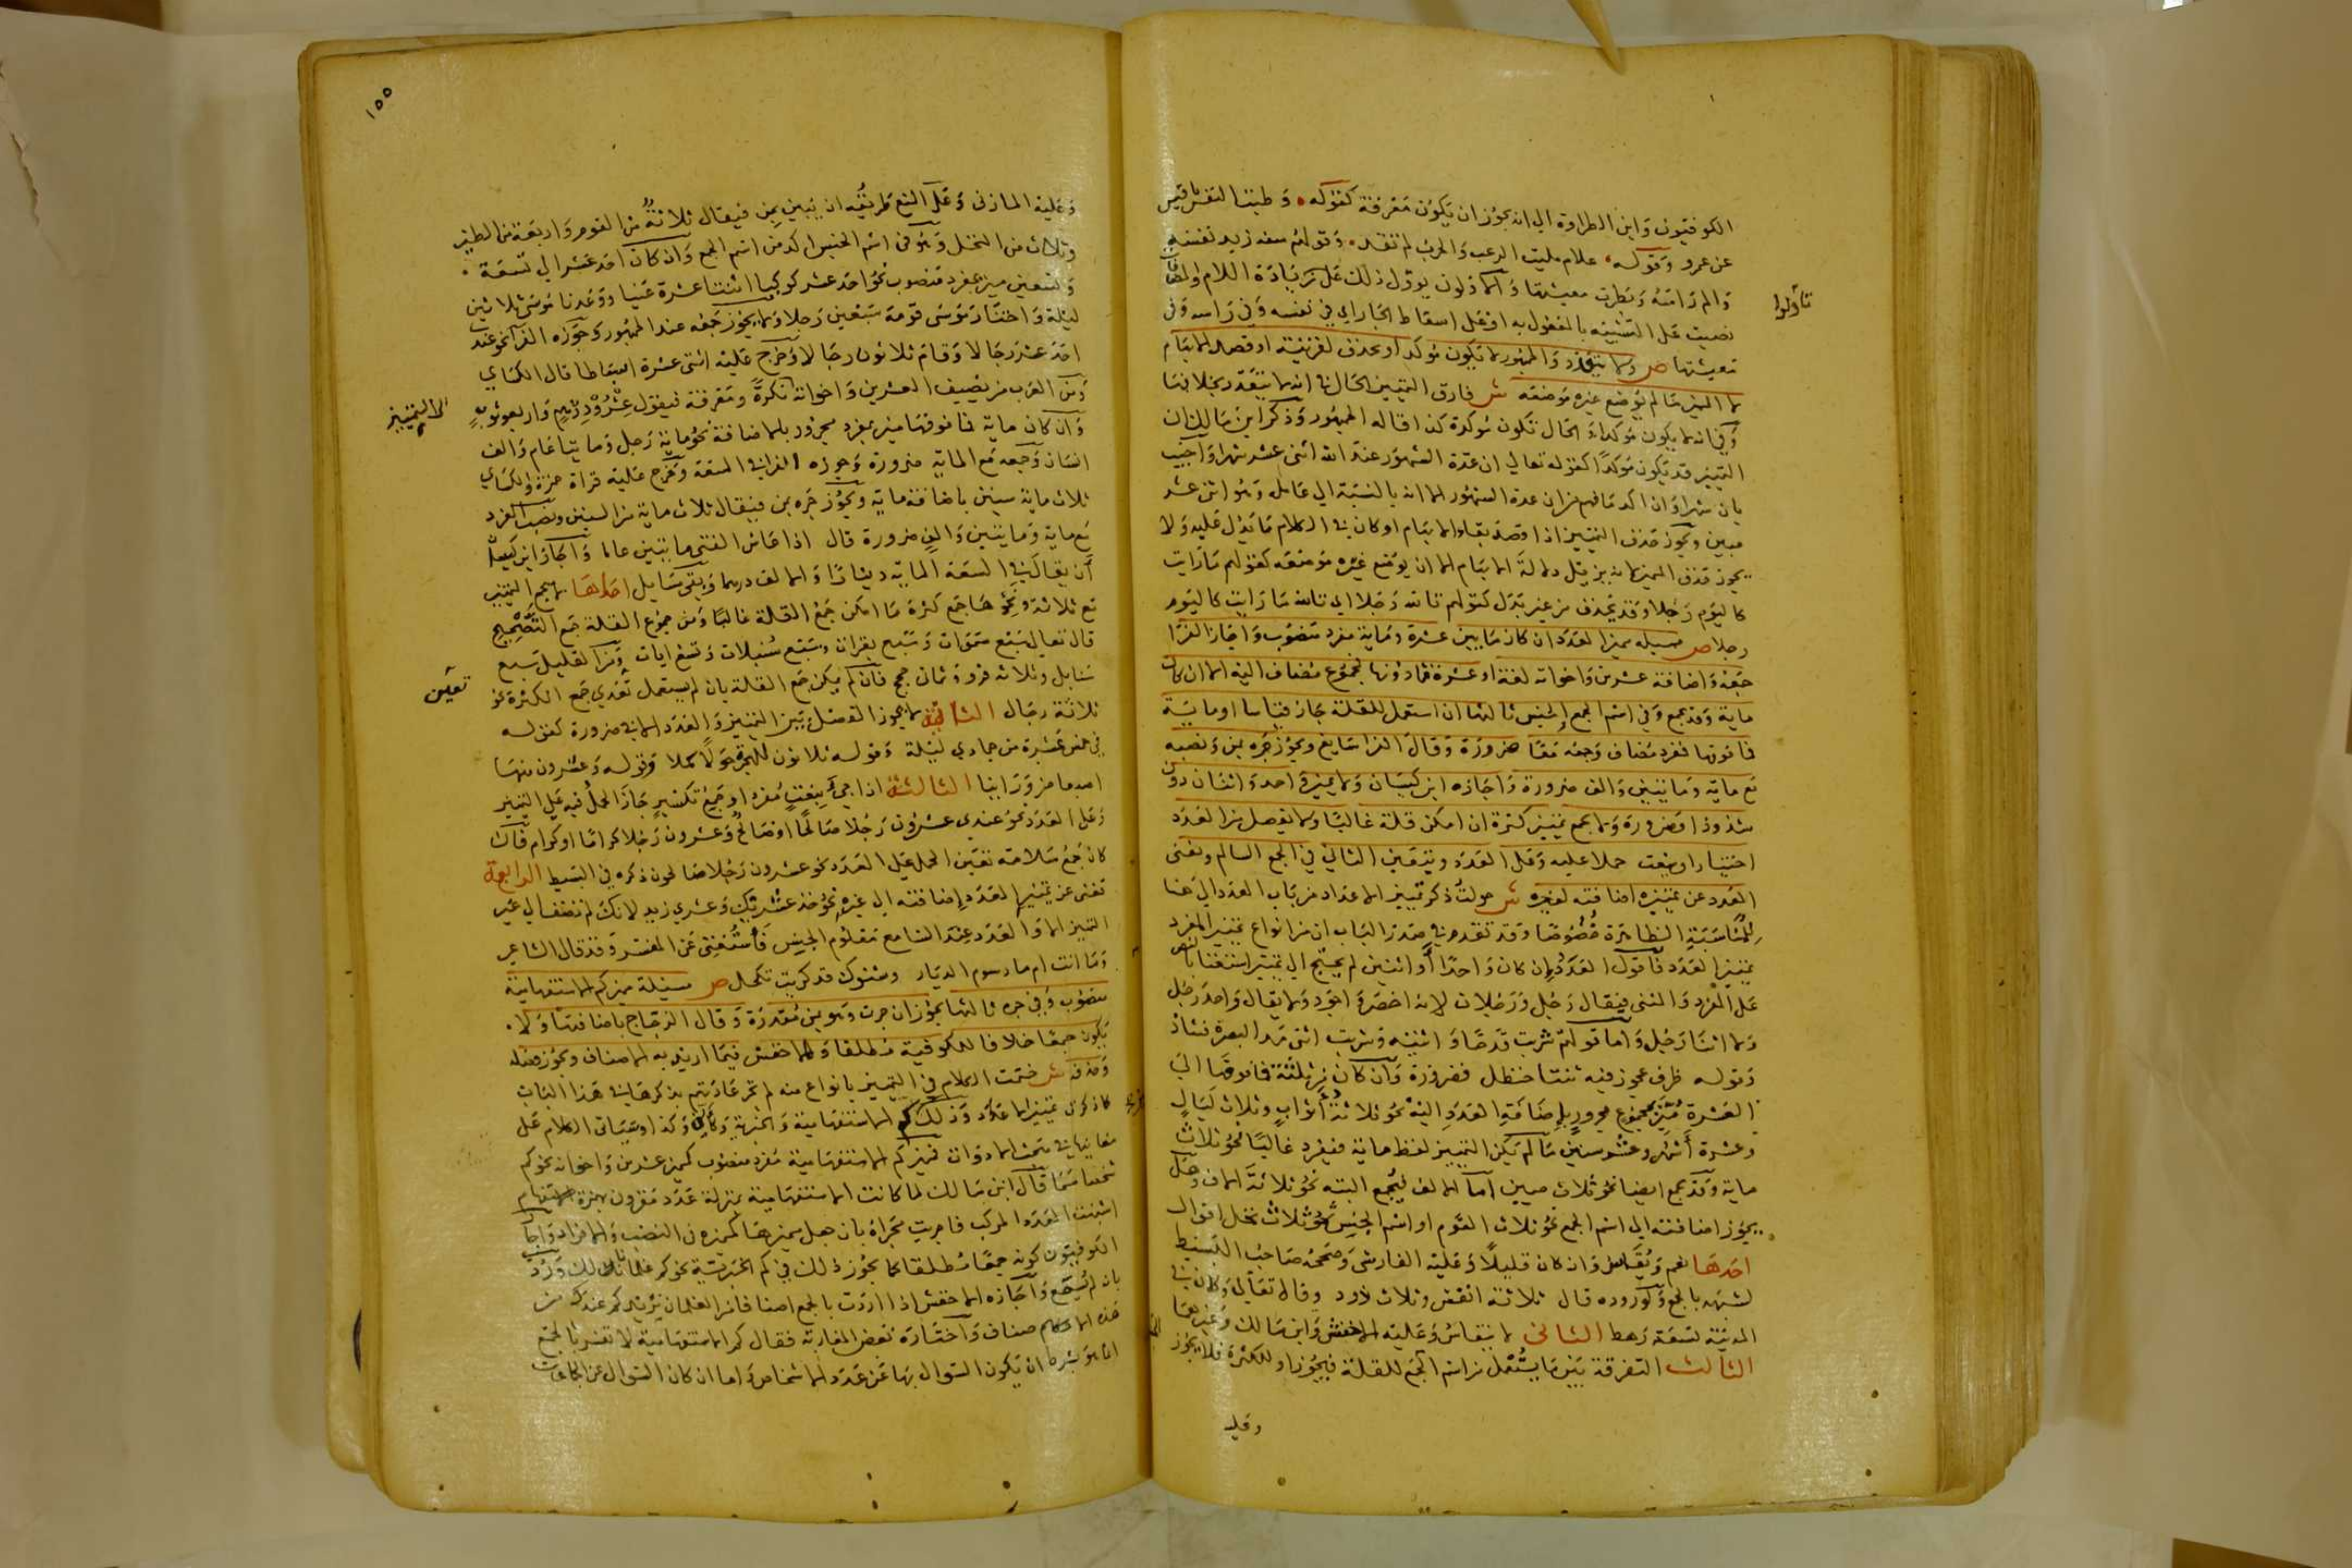 الكوفيون وابن الطراوة الى انه يجوز ان يكون معرفة كقوله وطبت النفس يا قيس
عن عمرو وقوله علام مليت الرعب والحرب لم تقد وقولهم سفه زيد نفسه
والم راسه وبطرت معيشتها والاولون يوول ذلك على زيادة اللام والمضاف
تاولوا
نصبت على التشبيه بالمفعول به او على اسقاط الجار اي في نفسه وفي راسه وفي
معيشتها ص ولا يتعدد والجمهور لا يكون موكدا ويحذف لقرينة او قصد الابهام
لا المميز ما لم يوضع غيره موضعه ش فارق التمييز الحال في انه لا يتعدد بخلافها
وفي انه لا يكون موكدا والحال تكون موكدة كذا قاله الجمهور وذكر ابن مالك ان
التمييز قد يكون موكدا كقوله تعالى ان عدة الشهور عند الله اثنى عشر شهرا واجيب
بان شهرا وان اكد ما فهم من ان عدة الشهور الا انه بالنسبة الى عامله وهو اثنى عشر
مبين ويجوز حذف التمييز اذا قصد بقاء الابهام او كان في الكلام ما يدل عليه ولا
يجوز حذف المميز لانه يزيل دلالة الابهام الا ان يوضع غيره موضعه كقولهم ما رايت
كاليوم رجلا وقد يحذف من غير بدل كقولهم تالله رجلا اي تالله ما رايت كاليوم
رجلا ص مسيلة مميز العدد ان كان ما بين عشرة ومايه مفرد منصوب واجاز الفرا
جمعه واضافة عشرين واخواته لغة او عشرة فما دونها مجموع مضاف اليه الا ان كان
ماية وقد يجمع وفي اسم الجمع والجنس ثالثها ان استعمل للقلة جاز قياسا او ماية
فما فوقها مفرد مضاف وجمعه معها ضرورة وقال الفرا سايغ ويجوز جره بمن ونصبه
مع ماية ومايتين والف ضرورة واجازه ابن كيسان ولا يميز واحد واثنان دون
شذوذ او ضرورة ولا يجمع تمييز كثرة ان امكن قلة غالبا ولا يفصل من العدد
اختيارا وينعت حملا عليه وعلى العدد ويتعين الثاني في الجمع السالم ويغنى
العدد عن تمييزه اضافته لغيره ش حولت ذكر تمييز الاعداد من باب العدد الى هنا
للمناسبة الظاهرة خصوصا وقد تقدم في صدر الباب ان من انواع تمييز المفرد
تمييز العدد فاقول العدد ان كان واحدا او اثنين لم يحتج الى تمييز استغنا بالنص
على المفرد والمثنى فيقال رجل ورجلان لانه اخصر واجود ولا يقال واحد رجل
ولا اثنا رجل واما قولهم شربت قدحا واثنيه وشربت اثنى مد البصرة فشاذ
وقوله ظرف عجوز فيه ثنتا حنظل فضرورة وان كان ثلثة فما فوقها الى
العشرة ميز بمجموع مجرور باضافة العدد اليه نحو ثلاثة اثواب وثلاث ليال
وعشرة اشهر وعشر سنين ما لم يكن التمييز لفظ ماية فيفرد غالبا نحو ثلاث
ماية وقد يجمع ايضا نحو ثلاث ميين اما الالف فيجمع البتة نحو ثلاثة الاف وهل
يجوز اضافته الى اسم الجمع نحو ثلاث القوم او اسم الجنس نحو ثلاث نخل اقوال
احدها نعم ويقاس وان كان قليلا وعليه الفارسى وصححه صاحب البسيط
لشبهه بالجمع ولوروده قال ثلاثة انفس وثلاث ذود وقال تعالى وكان في
المدينة تسعة رهط الثانى لا ينقاس وعليه الاخفش وابن مالك وغيرهما
الثالث التفرقة بين ما يستعمل من اسم الجمع للقلة فيجوز او للكثرة فلا يجوز
وعليه
١٥٥
وعليه المازنى وعلى المنع طريقه ان يبين بمن فيقال ثلاثة من القوم واربعة من الطير
وثلاث من النخل وهو في اسم الجنس اكد من اسم الجمع وان كان احد عشر الى تسعة
وتسعين ميز بمفرد منصوب نحو احد عشر كوكبا اثنتا عشرة عينا ووعدنا موسى ثلاثين
ليلة واختار موسى قومه سبعين رجلا ولا يجوز جمعه عند الجمهور وجوزه الفرا نحو عندي
احد عشر رجالا وقام ثلاثون رجالا وخرج عليه اثنتى عشرة اسباطا قال الكساي
ومن العرب من يضيف العشرين واخواته نكرة ومعرفة فيقول عشرو درهم واربعو ثوب
الى التمييز
وان كان ماية فما فوقها ميز بمفرد مجرور بالاضافة نحو ماية رجل ومايتا عام والف
انسان وجمعه مع الماية ضرورة وجوزه الفرا في السعة وخرج عليه قراة حمزة والكساي
ثلاث ماية سنين باضافة ماية ويجوز جره بمن فيقال ثلاث ماية من السنين ونصب المفرد
مع ماية ومايتين والف ضرورة قال اذا عاش الفتى مايتين عاما واجاز ابن كيسان
ان يقال في السعة الماية دينارا والالف درهما وبقى مسايل احداها لا يجمع التمييز
مع ثلاثة ونحوها جمع كثرة ما امكن جمع القلة غالبا ومن جموع القلة جمع التصحيح
قال تعالى سبع سموات وسبع بقرات وسبع سنبلات وتسع ايات ومن القليل سبع
سنابل وثلاثة قروء وثمان حجج فان لم يكن جمع القلة بان لم يستعمل تعين جمع الكثرة نحو
تعين
ثلاثة رجال الثانية لا يجوز الفصل بين التمييز والعدد الا في ضرورة كقوله
في خمس عشرة من جمادى ليلة وقوله ثلاثون للهجر حولا كملا وقوله وعشرون منها
اصبعا من ورائيا الثالثة اذا جئ بنعت مفرد او جمع تكسير جاز الحمل فيه على التمييز
وعلى العدد نحو عندى عشرون رجلا صالحا او صالح وعشرون رجلا كراما او كرام فان
كان جمع سلامة تعين الحمل على العدد نحو عشرون رجلا صالحون ذكره في البسيط الرابعة
تغنى عن تمييز العدد اضافته الى غيره نحو خذ عشريك وعشري زيد لانك لم تضف الى غير
التمييز الا والعدد عند السامع معلوم الجنس فاستغنى عن المفسر وقد قال الشاعر
وما انت ام ما رسوم الديار وستوك قد كربت تكمل ص مسيلة مميز كم الاستفهامية
منصوب وفي جره ثالثها يجوز ان جرت وهو بمن مقدرة وقال الزجاج باضافتها ولا
يكون جمعا خلافا للكوفية مطلقا وللاخفش فيما اريد به الاصناف ويجوز فصله
وحذفه ش ختمت الكلام في التمييز بانواع منه لم تجر عادتهم بذكرها في هذا الباب
كما ذكرت تمييز الاعداد وذلك كم الاستفهامية والخبرية وكاين وكذا وسياتى الكلام على
معانيها في مبحث الادوات فمميز كم الاستفهامية مفرد منصوب كمميز عشرين واخواته نحو كم
شخصا سما قال ابن مالك لما كانت الاستفهامية بمنزلة عدد مقرون بهمزة استفهام
اشبهت العدد المركب فاجريت مجراه بان جعل مميزها كمميزه في النصب والافراد واجاز
الكوفيون كونه جمعا مطلقا كما يجوز ذلك في كم الخبرية نحو كم غلمانا لك ورد
بانه لم يسمع واجازه الاخفش اذا اردت بالجمع اصنافا من الغلمان تريد كم عندك من
هذه الاصناف واختاره بعض المغاربة فقال كم الاستفهامية لا تفسر بالجمع
انما هو بشرط ان يكون السوال بها عن عدد الاشخاص واما ان كان السوال عن الجماعات